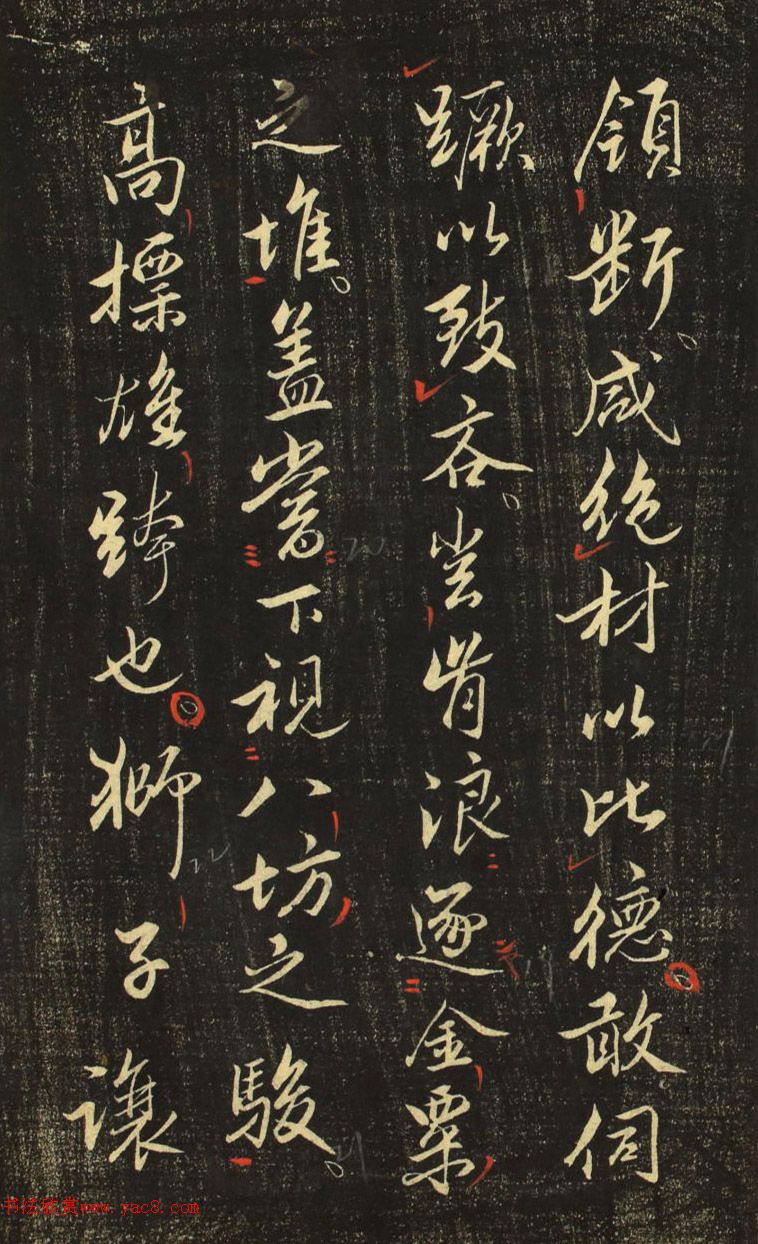 領断咸絶材以比德敢伺
蹶以致吝豈肯浪逐金粟
之堆盖當下視八坊之駿
高摽雄跨也獅子讓
书法欣赏www.yac8.com